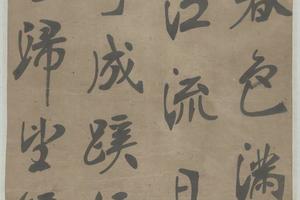 春色滿
江流日
成蹊
歸坐